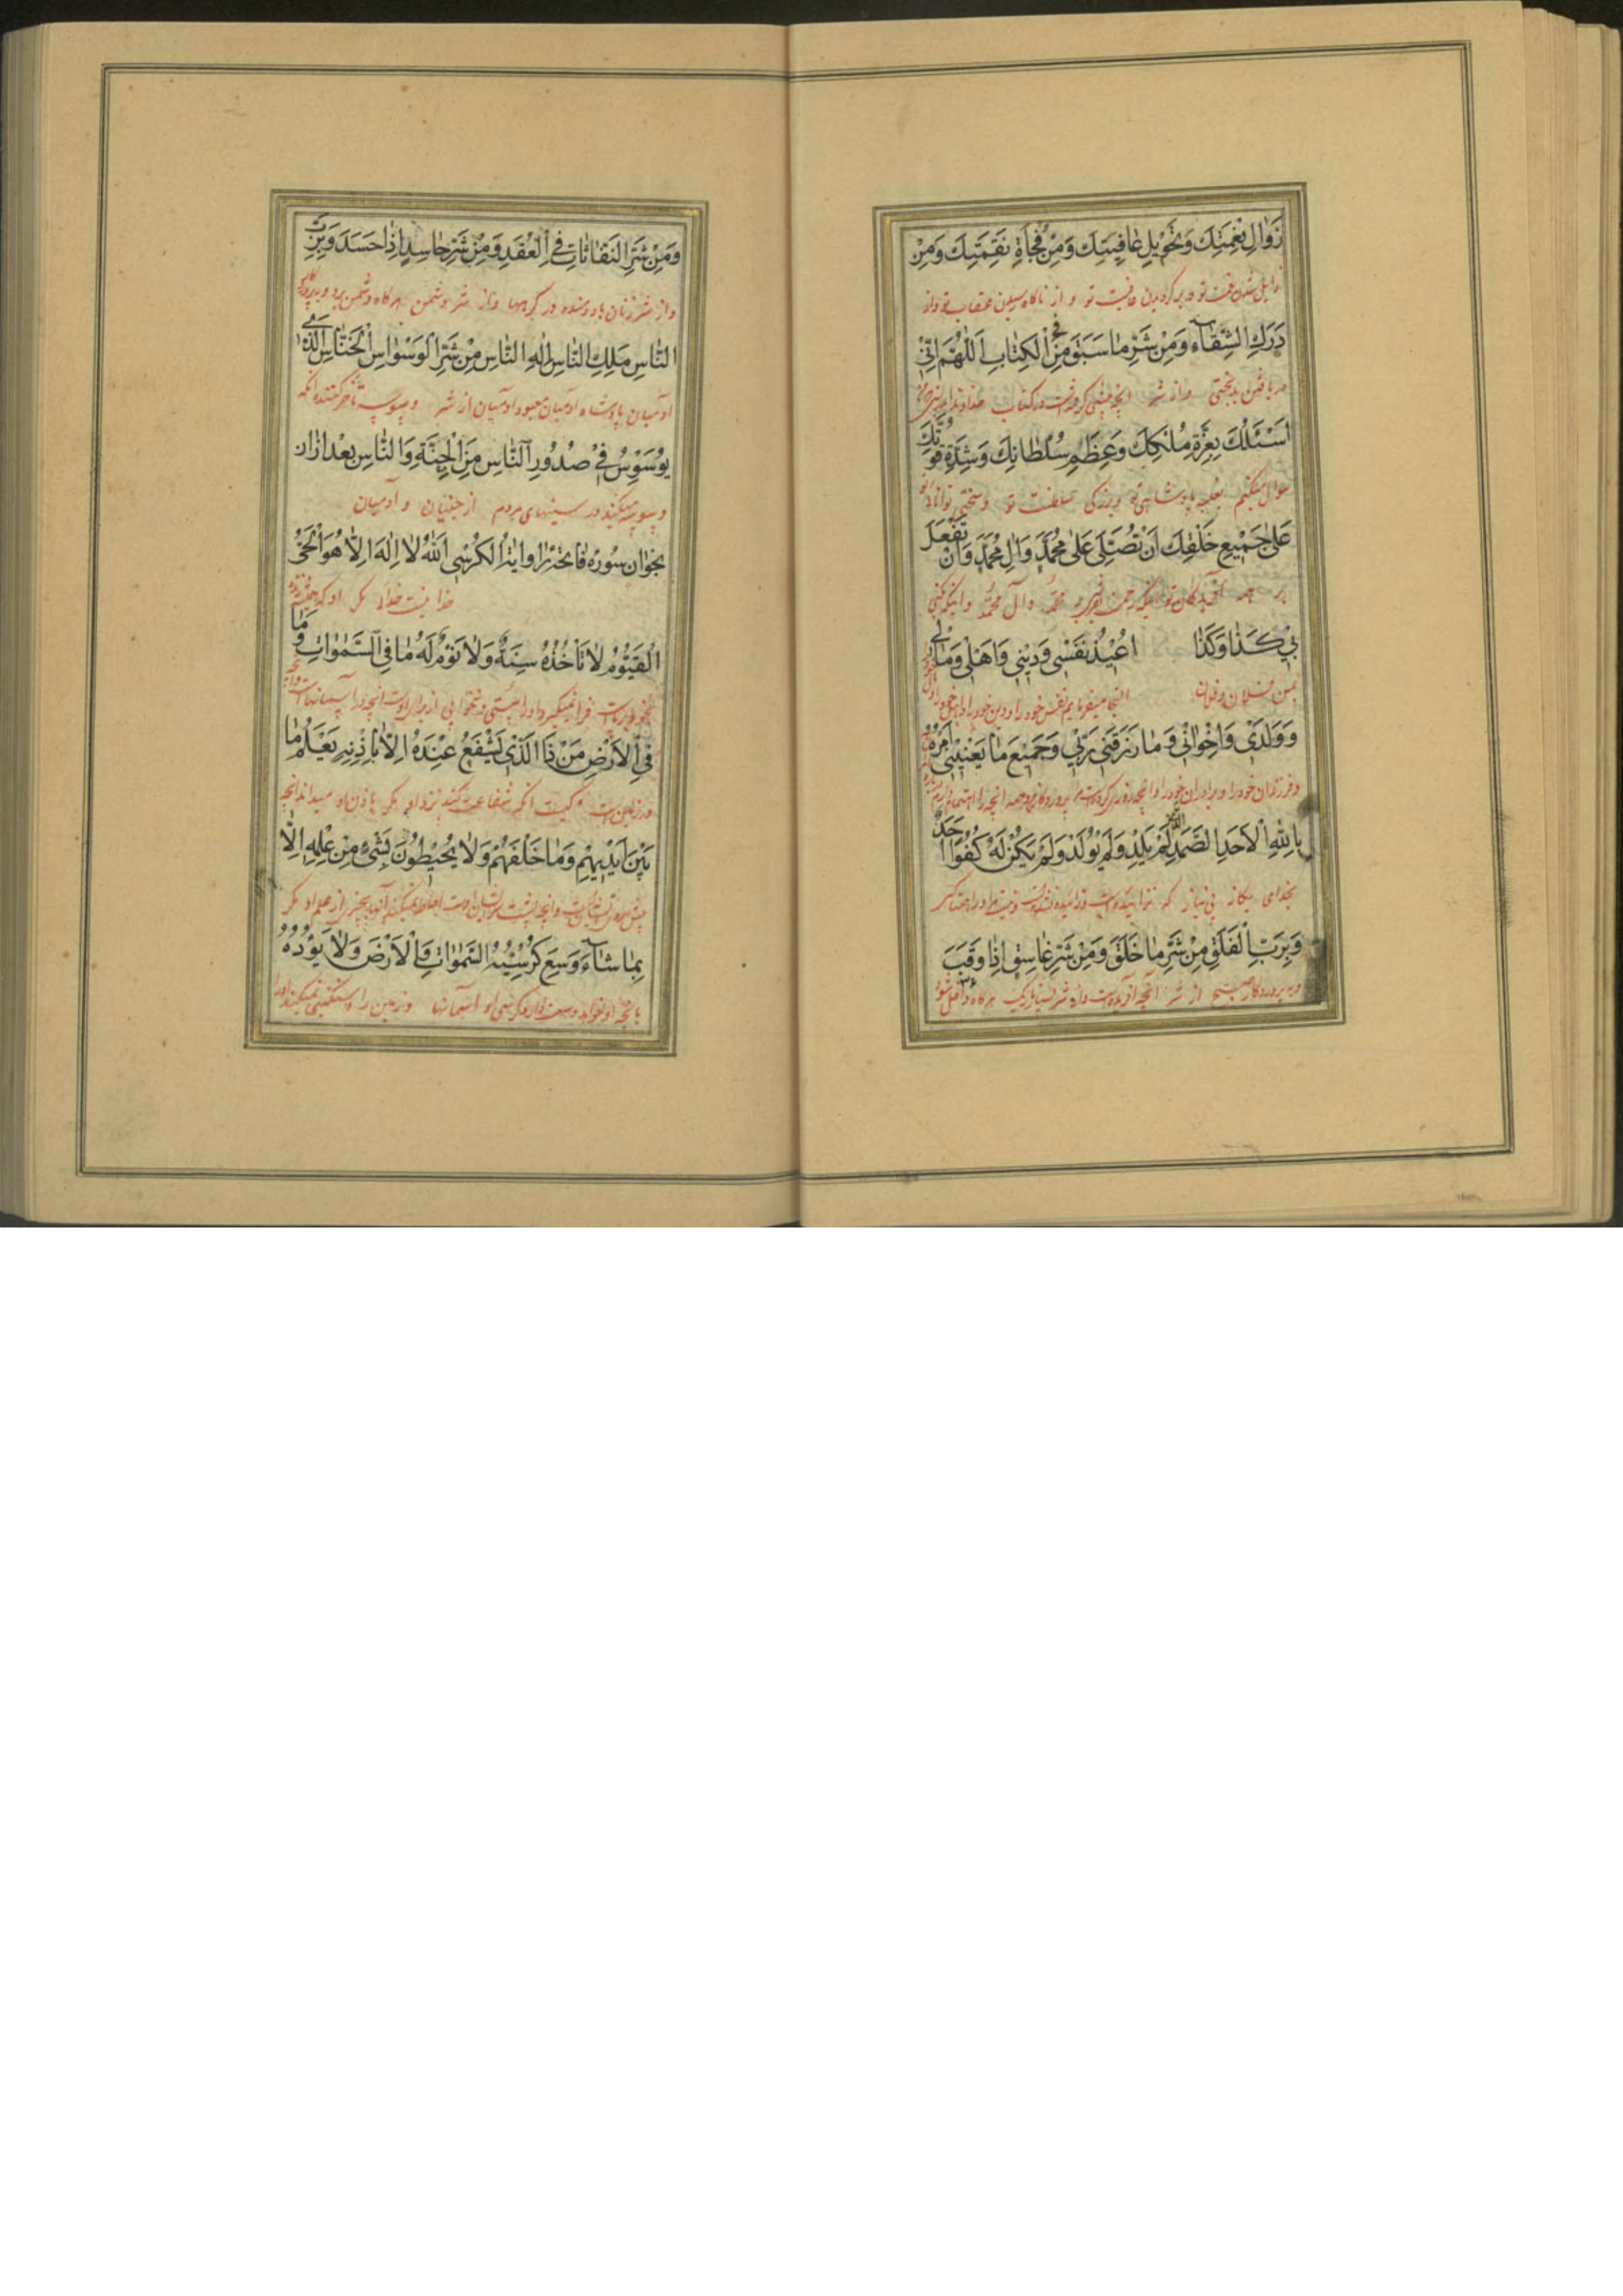 زَوَالِ نِعْمَتِكَ وَتَحْوِيلِ عَافِيَتِكَ وَمِنْ فُجْأَةِ نَقِمَتِكَ وَمِنْ
زایل شدن نعمت تو و برگردیدن عافیت تو و از ناگاه رسیدن عقاب تو و از
دَرَكِ الشَّقَاءِ وَمِنْ شَرِّ مَا سَبَقَ فِي الْكِتَابِ اَللّٰهُمَّ اِنّي
دریافتن بدبختی و از شر آنچه پیشی گرفته است در کتاب خداوندا
اَسْئَلُكَ بِعِزَّةِ مُلْكِكَ وَعِظَمِ سُلْطَانِكَ وَشِدَّةِ قُوَّتِكَ
سوال میکنم بغلبه پادشاهی تو و بزرگی سلطنت تو و سختی توانائی تو
عَلىٰ جَمِيعِ خَلْقِكَ اَنْ تُصَلِّيَ عَلىٰ مُحَمَّدٍ وَاٰلِ مُحَمَّدٍ وَاَنْ تَفْعَلَ
بر همه آفریدگان تو اینکه رحمت بفرستی بر محمّد و آل محمّد و اینکه کنی
بي كَذَا وَكَذَا اُعِيذُ نَفْسِي وَدِينِي وَاَهْلِي وَمَالِي
بمن فلان و فلان التجا میفرمایم نفس خود را و دین خود را و اهل خود را
وَوَلَدِي وَاِخْوَانِي وَمَا رَزَقَنِي رَبِّي وَجَمِيعَ مَا يَعْنِينِي اَمْرُهُ
و فرزندان خود را و برادران خود را و آنچه روزی کرده است مرا پروردگار من و همه آنچه
بِاللّٰهِ الْاَحَدِ الصَّمَدِ الَّذِي لَمْ يَلِدْ وَلَمْ يُولَدْ وَلَمْ يَكُنْ لَهُ كُفُوًا اَحَدٌ
بخدای یگانه بی نیاز که نزائیده است و زائیده نشده است و نیست مر او را همتا کسی
وَبِرَبِّ الْفَلَقِ مِنْ شَرِّ مَا خَلَقَ وَمِنْ شَرِّ غَاسِقٍ اِذَا وَقَبَ
و به پروردگار صبح از شر آنچه آفریده است و از شر شب تاریک هرگاه داخل شود
وَمِنْ شَرِّ النَّفَّاثَاتِ فِي الْعُقَدِ وَمِنْ شَرِّ حَاسِدٍ اِذَا حَسَدَ وَبِرَبِّ
و از شر زنان باد دمنده در گرهها و از شر دشمن هرگاه دشمن برد و به پروردگار
النَّاسِ مَلِكِ النَّاسِ اِلٰهِ النَّاسِ مِنْ شَرِّ الْوَسْوَاسِ الْخَنَّاسِ الَّذِي
آدمیان پادشاه آدمیان معبود آدمیان از شر وسوسه تاخیر کننده آنکه
يُوَسْوِسُ فِي صُدُورِ النَّاسِ مِنَ الْجِنَّةِ وَالنَّاسِ بعد از ان
وسوسه میکند در سینهای مردم از جنیان و آدمیان
بخوان سوره فاتحه را و اية الكرسي اَللّٰهُ لَا اِلٰهَ اِلَّا هُوَ الْحَيُّ
خدا نیست خدائی مگر او که همیشه زنده
الْقَيُّومُ لَا تَأْخُذُهُ سِنَةٌ وَلَا نَوْمٌ لَهُ مَا فِي السَّمٰوَاتِ وَمَا
فرا نمیگیرد او را پینکی و نه خوابی از برای اوست آنچه در آسمانهاست و آنچه
فِي الْاَرْضِ مَنْ ذَا الَّذِي يَشْفَعُ عِنْدَهُ اِلَّا بِاِذْنِهِ يَعْلَمُ مَا
در زمین است کیست آنکه شفاعت کند نزد او مگر باذن او میداند آنچه
بَيْنَ اَيْدِيهِمْ وَمَا خَلْفَهُمْ وَلَا يُحِيطُونَ بِشَيْءٍ مِنْ عِلْمِهِ اِلَّا
پیش روی ایشانست و آنچه پشت سر ایشان است احاطه نمیکنند آنها بچیزی از علم او مگر
بِمَا شَاءَ وَسِعَ كُرْسِيُّهُ السَّمٰوَاتِ وَالْاَرْضَ وَلَا يَؤُدُهُ
بآنچه او خواهد وسعت دارد کرسی او آسمانها و زمین را و سنگینی نمیکند او را